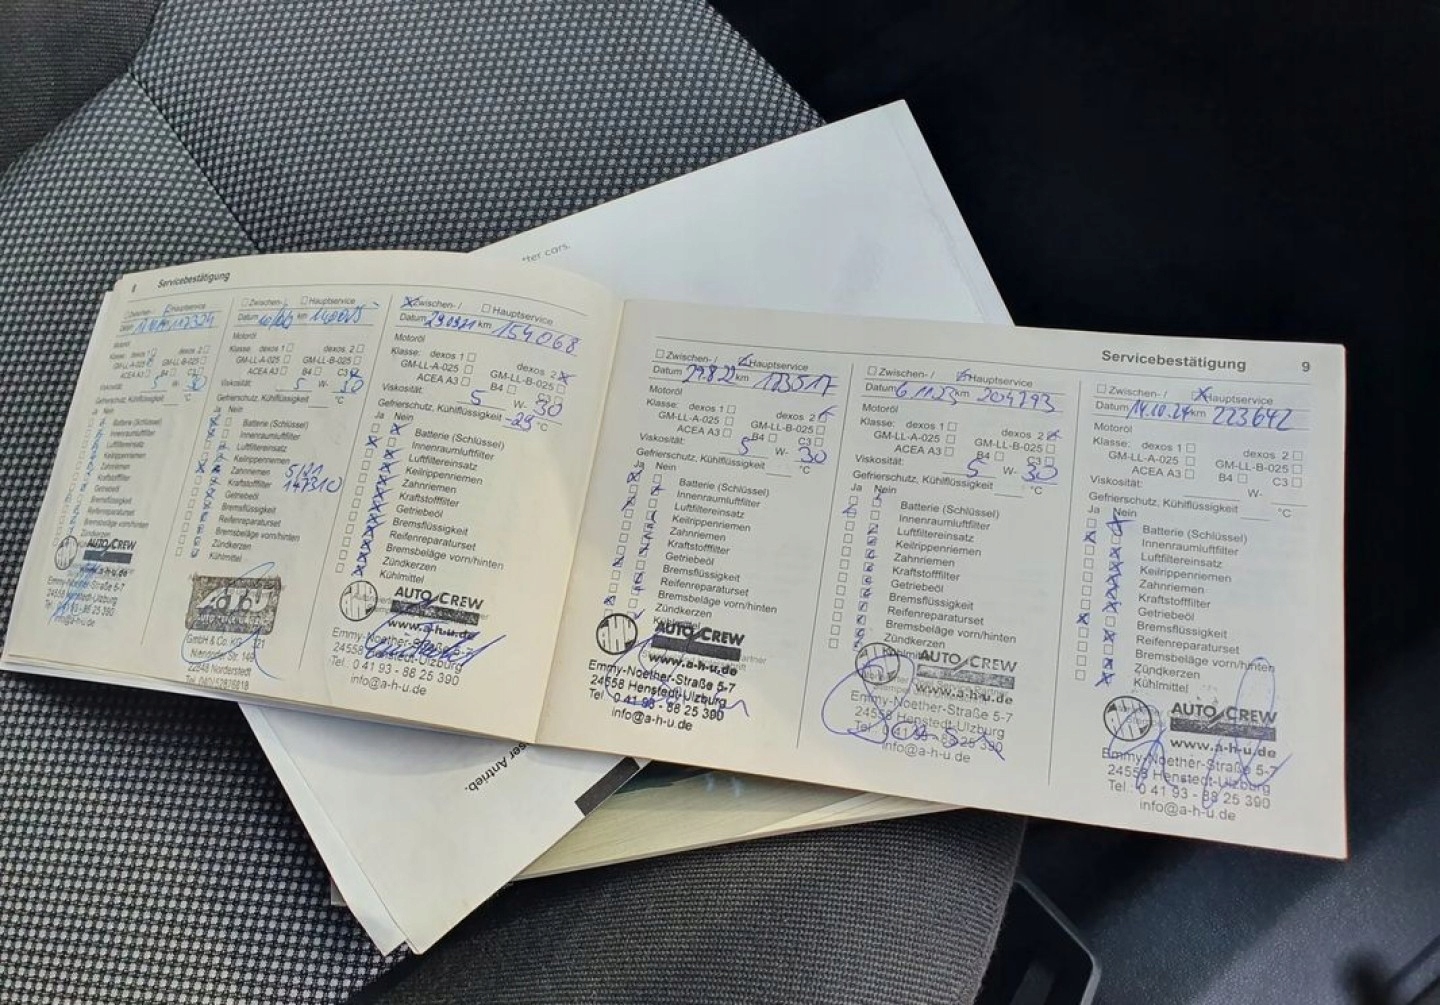 tter cars.
8 Servicebestätigung
Zwischen- Hauptservice
Motoröl
Klasse: dexos 1 dexos 2
GM-LL-A-025 GM-LL-B-025
ACEA A3 B4 C3
Viskosität: 5 W- 30
Gefrierschutz, Kühlflüssigkeit °C
Ja Nein
Batterie (Schlüssel)
Innenraumluftfilter
Luftfiltereinsatz
Keilrippenriemen
Zahnriemen
Kraftstofffilter
Getriebeöl
Bremsflüssigkeit
Reifenreparaturset
Bremsbeläge vorn/hinten
Zündkerzen
AUTO CREW
www.a-h-u.de
Emmy-Noether-Straße 5-7
24558 Henstedt-Ulzburg
Tel. 0 41 93 - 88 25 390
info@a-h-u.de
Zwischen-/ Hauptservice
Datum km
Motoröl
Klasse: dexos 1 dexos 2
GM-LL-A-025 GM-LL-B-025
ACEA A3 B4 C3
Viskosität: 5 W- 30
Gefrierschutz, Kühlflüssigkeit °C
Ja Nein
Batterie (Schlüssel)
Innenraumluftfilter
Luftfiltereinsatz
Keilrippenriemen
Zahnriemen 5/21
Kraftstofffilter 147310
Getriebeöl
Bremsflüssigkeit
Reifenreparaturset
Bremsbeläge vorn/hinten
Zündkerzen
Kühlmittel
GmbH & Co. KG
22848 Norderstedt
Zwischen-/ Hauptservice
Datum 29.09.21 km 154068
Motoröl
Klasse: dexos 1 dexos 2
GM-LL-A-025 GM-LL-B-025
ACEA A3 B4 C3
Viskosität: 5 W- 30
Gefrierschutz, Kühlflüssigkeit -29 °C
Ja Nein
Batterie (Schlüssel)
Innenraumluftfilter
Luftfiltereinsatz
Keilrippenriemen
Zahnriemen
Kraftstofffilter
Getriebeöl
Bremsflüssigkeit
Reifenreparaturset
Bremsbeläge vorn/hinten
Zündkerzen
Kühlmittel
AUTO CREW
www.a-h-u.de
Emmy-Noether-Straße 5-7
24558 Henstedt-Ulzburg
Tel. 0 41 93 - 88 25 390
info@a-h-u.de
Servicebestätigung 9
Zwischen-/ Hauptservice
Datum 29.8.22 km 173517
Motoröl
Klasse: dexos 1 dexos 2
GM-LL-A-025 GM-LL-B-025
ACEA A3 B4 C3
Viskosität: 5 W- 30
Gefrierschutz, Kühlflüssigkeit °C
Ja Nein
Batterie (Schlüssel)
Innenraumluftfilter
Luftfiltereinsatz
Keilrippenriemen
Zahnriemen
Kraftstofffilter
Getriebeöl
Bremsflüssigkeit
Reifenreparaturset
Bremsbeläge vorn/hinten
Zündkerzen
Kühlmittel
AUTO CREW
www.a-h-u.de
Emmy-Noether-Straße 5-7
24558 Henstedt-Ulzburg
Tel. 0 41 93 - 88 25 390
info@a-h-u.de
Zwischen-/ Hauptservice
Datum 6.11.23 km 204793
Motoröl
Klasse: dexos 1 dexos 2
GM-LL-A-025 GM-LL-B-025
ACEA A3 B4 C3
Viskosität: 5 W- 30
Gefrierschutz, Kühlflüssigkeit °C
Ja Nein
Batterie (Schlüssel)
Innenraumluftfilter
Luftfiltereinsatz
Keilrippenriemen
Zahnriemen
Kraftstofffilter
Getriebeöl
Bremsflüssigkeit
Reifenreparaturset
Bremsbeläge vorn/hinten
Zündkerzen
Kühlmittel
AUTO CREW
www.a-h-u.de
Emmy-Noether-Straße 5-7
24558 Henstedt-Ulzburg
Tel. 0 41 93 - 88 25 390
info@a-h-u.de
Zwischen-/ Hauptservice
Datum 14.10.24 km 223642
Motoröl
Klasse: dexos 1 dexos 2
GM-LL-A-025 GM-LL-B-025
ACEA A3 B4 C3
Viskosität: W-
Gefrierschutz, Kühlflüssigkeit °C
Ja Nein
Batterie (Schlüssel)
Innenraumluftfilter
Luftfiltereinsatz
Keilrippenriemen
Zahnriemen
Kraftstofffilter
Getriebeöl
Bremsflüssigkeit
Reifenreparaturset
Bremsbeläge vorn/hinten
Zündkerzen
Kühlmittel
AUTO CREW
www.a-h-u.de
Emmy-Noether-Straße 5-7
24558 Henstedt-Ulzburg
Tel. 0 41 93 - 88 25 390
info@a-h-u.de
ser Antrieb.